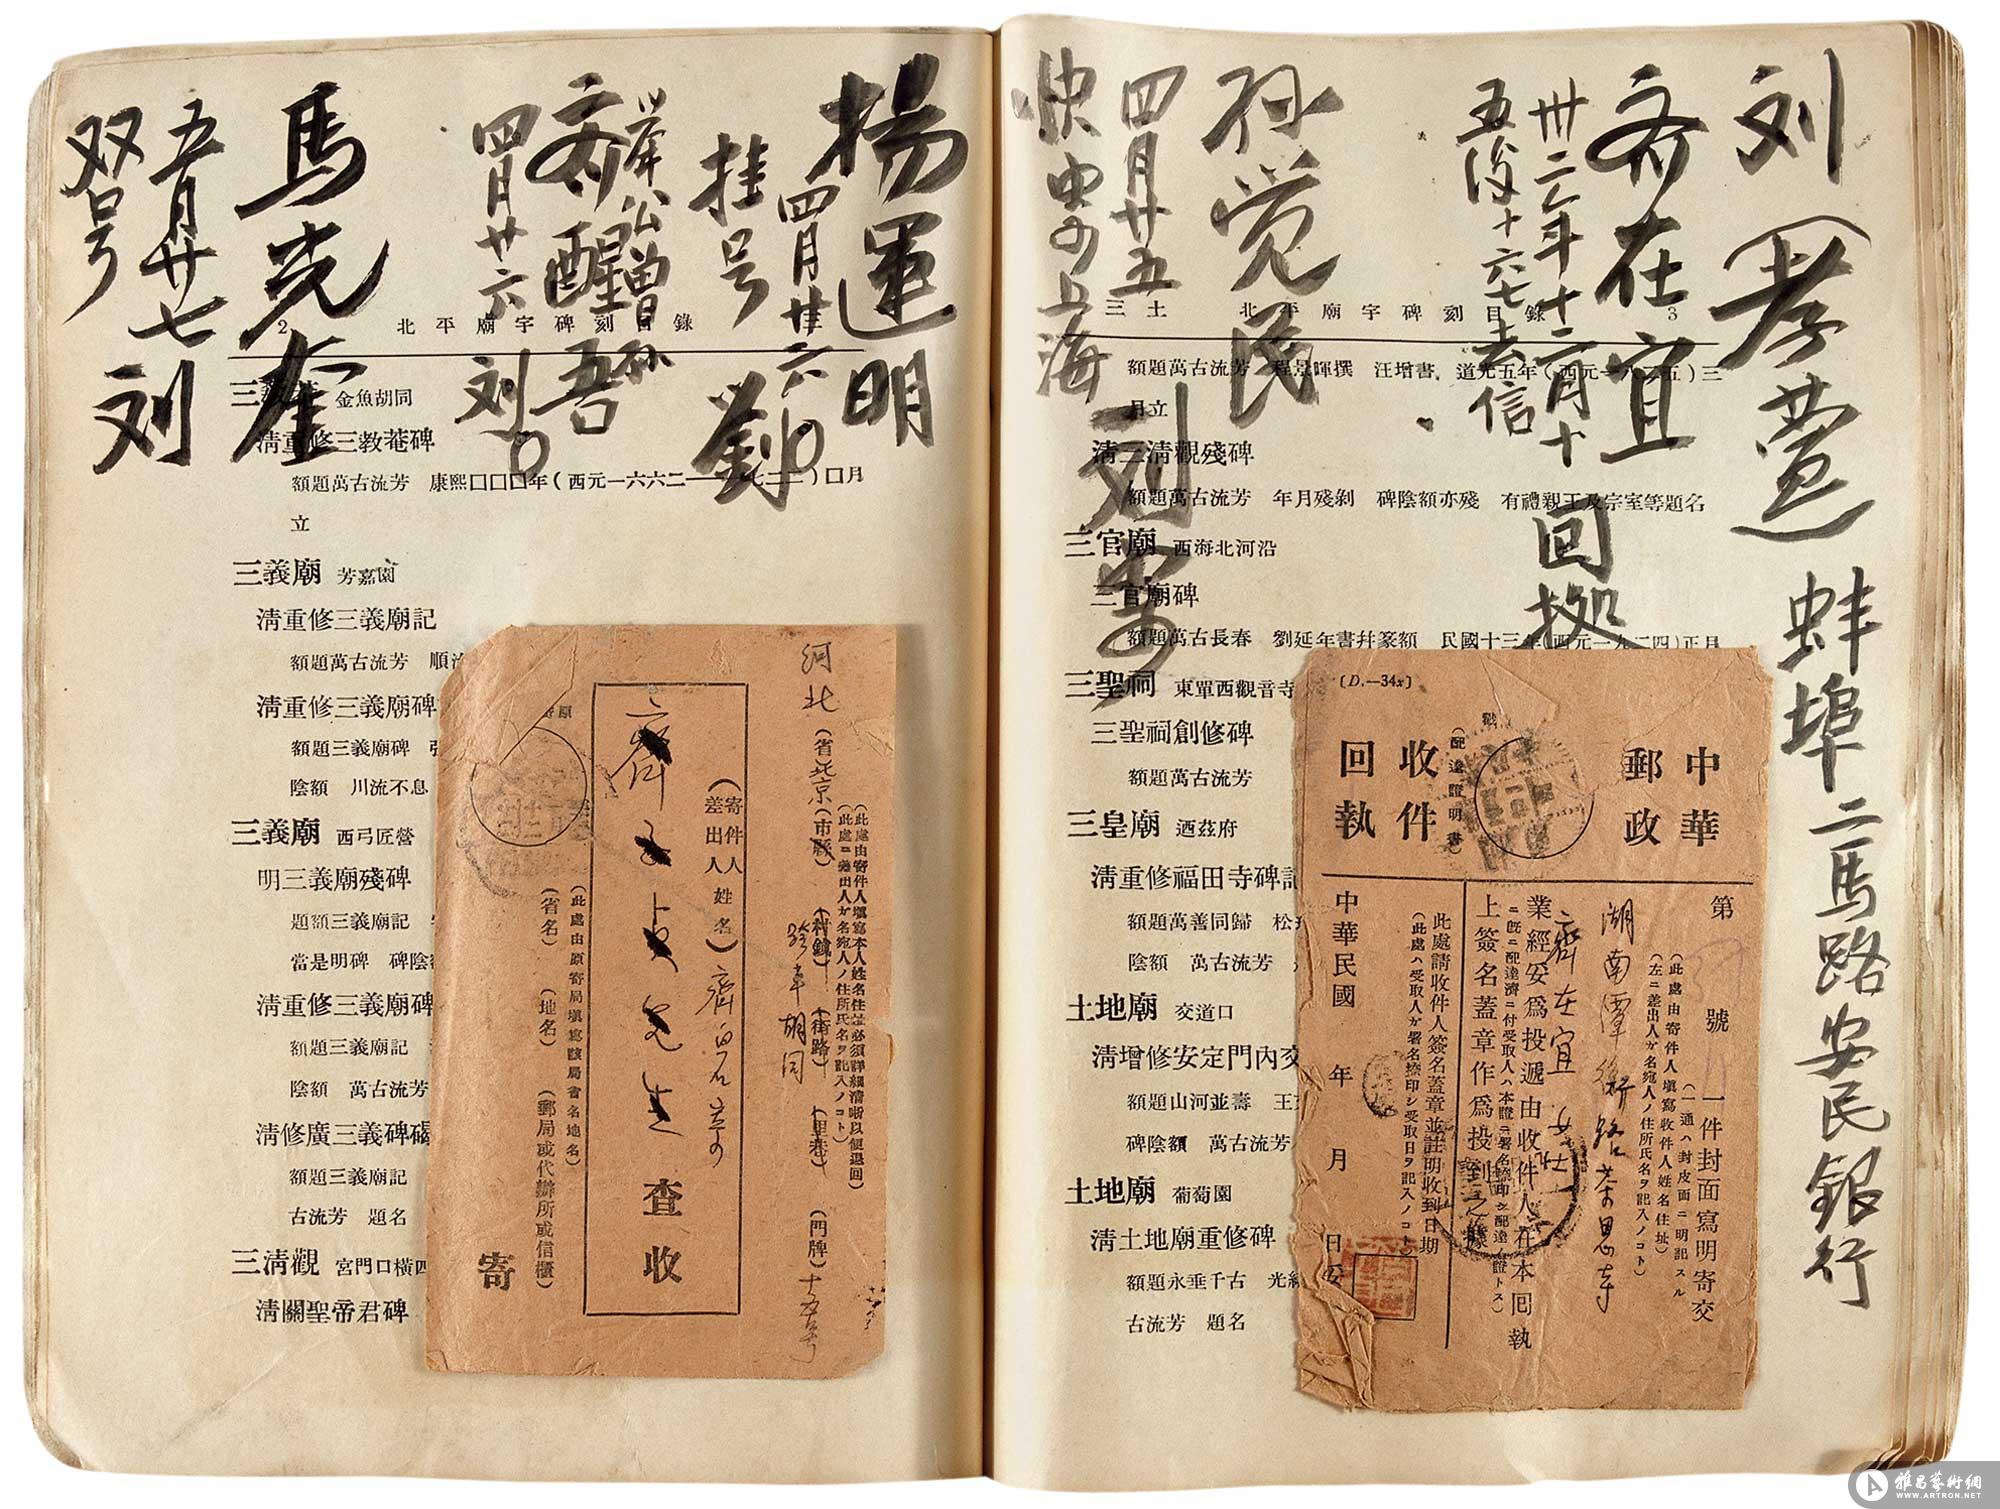 刘（孝萱）蚌埠二马路安民銀行
齐在宜
卅二年十二月十
五后十六七去信
回拠
孙觉民
四月廿五
快由上海
刘
揚運明
四月廿六
挂号
劉
齐醒吾
四月廿六
刘
馬克奎
五月廿七刘
双号
2
北平廟宇碑刻目錄
金魚胡同
淸重修三教菴碑
額題萬古流芳 康熙囗囗囗年（西元一六六二
囗月
立
三義廟 芳嘉園
淸重修三義廟記
額題萬古流芳
淸重修三義廟碑
額題三義廟碑
陰額 川流不息
三義廟 西弓匠營
明三義廟殘碑
題額三義廟記
當是明碑
淸重修三義廟碑
額題三義廟記
陰額 萬古流芳
淸修廣三義碑
額題三義廟記
古流芳 題名
三淸觀 宮門口橫四
淸關聖帝君碑
三土
北平廟宇碑刻目錄
3
額題萬古流芳 程景暉撰 汪增書 道光五年（西元一八二五）三
月立
淸三淸觀殘碑
額題萬古流芳 年月殘剝 碑陰額亦殘 有禮親王及宗室等題名
三官廟 西海北河沿
三官廟碑
額題萬古長春 劉延年書幷篆額 民國十三年（西元一九二四）正月
三聖祠 東單西觀音寺
三聖祠創修碑
額題萬古流芳
三皇廟 迺茲府
淸重修福田寺碑記
額題萬善同歸
陰額 萬古流芳
土地廟 交道口
淸增修安定門內交
額題山河並壽
碑陰額 萬古流芳
土地廟 葡萄園
淸土地廟重修碑
額題永垂千古
古流芳 題名
河北（省）北京（市縣）（村鎮）（街路）（里巷）（門牌）十五号
跨车胡同
（此處由寄件人塡寫本人姓名住址必須詳細淸晰以便退回）
（此處ニ差出人カ名宛人ノ住所氏名ヲ記入ノコト）
（寄件人姓名）
差出人
齊白石
先生
查收
（此處由原寄局塡寫該局省名地名）
（省名）（地名）（郵局或代辦所或信櫃）
寄
(D.—34x)
中華
郵政
收件
回執
（配達證明書）
第 號
一件封面寫明寄交
（一通ハ封皮面ニ明記スル
（此處由寄件人塡寫收件人姓名住址）
（左ニ差出人カ名宛人ノ住所氏名ヲ記入ノコト）
湖南潭
齊在宜女士
業經妥爲投遞由收件人在本回執
ニ旣ニ配達濟ニ付受取人ハ本證ニ署名捺印シ配達ノ證トス）
上簽名蓋章作爲投到之據
此處請收件人簽名蓋章並註明收到日期
（此處ハ受取人カ署名捺印シ受取日ヲ記入ノコト）
中華民國 年 月 日
雅昌藝術網
WWW.ARTRON.NET